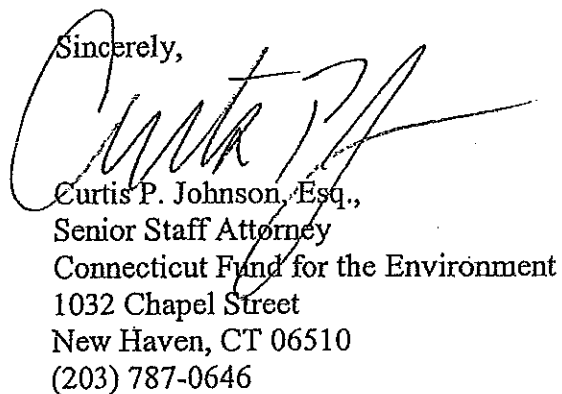 Sincerely,
Curtis P. J
Curtis P. Johnson, Esq.,
Senior Staff Attorney
Connecticut Fund for the Environment
1032 Chapel Street
New Haven, CT 06510
(203) 787-0646